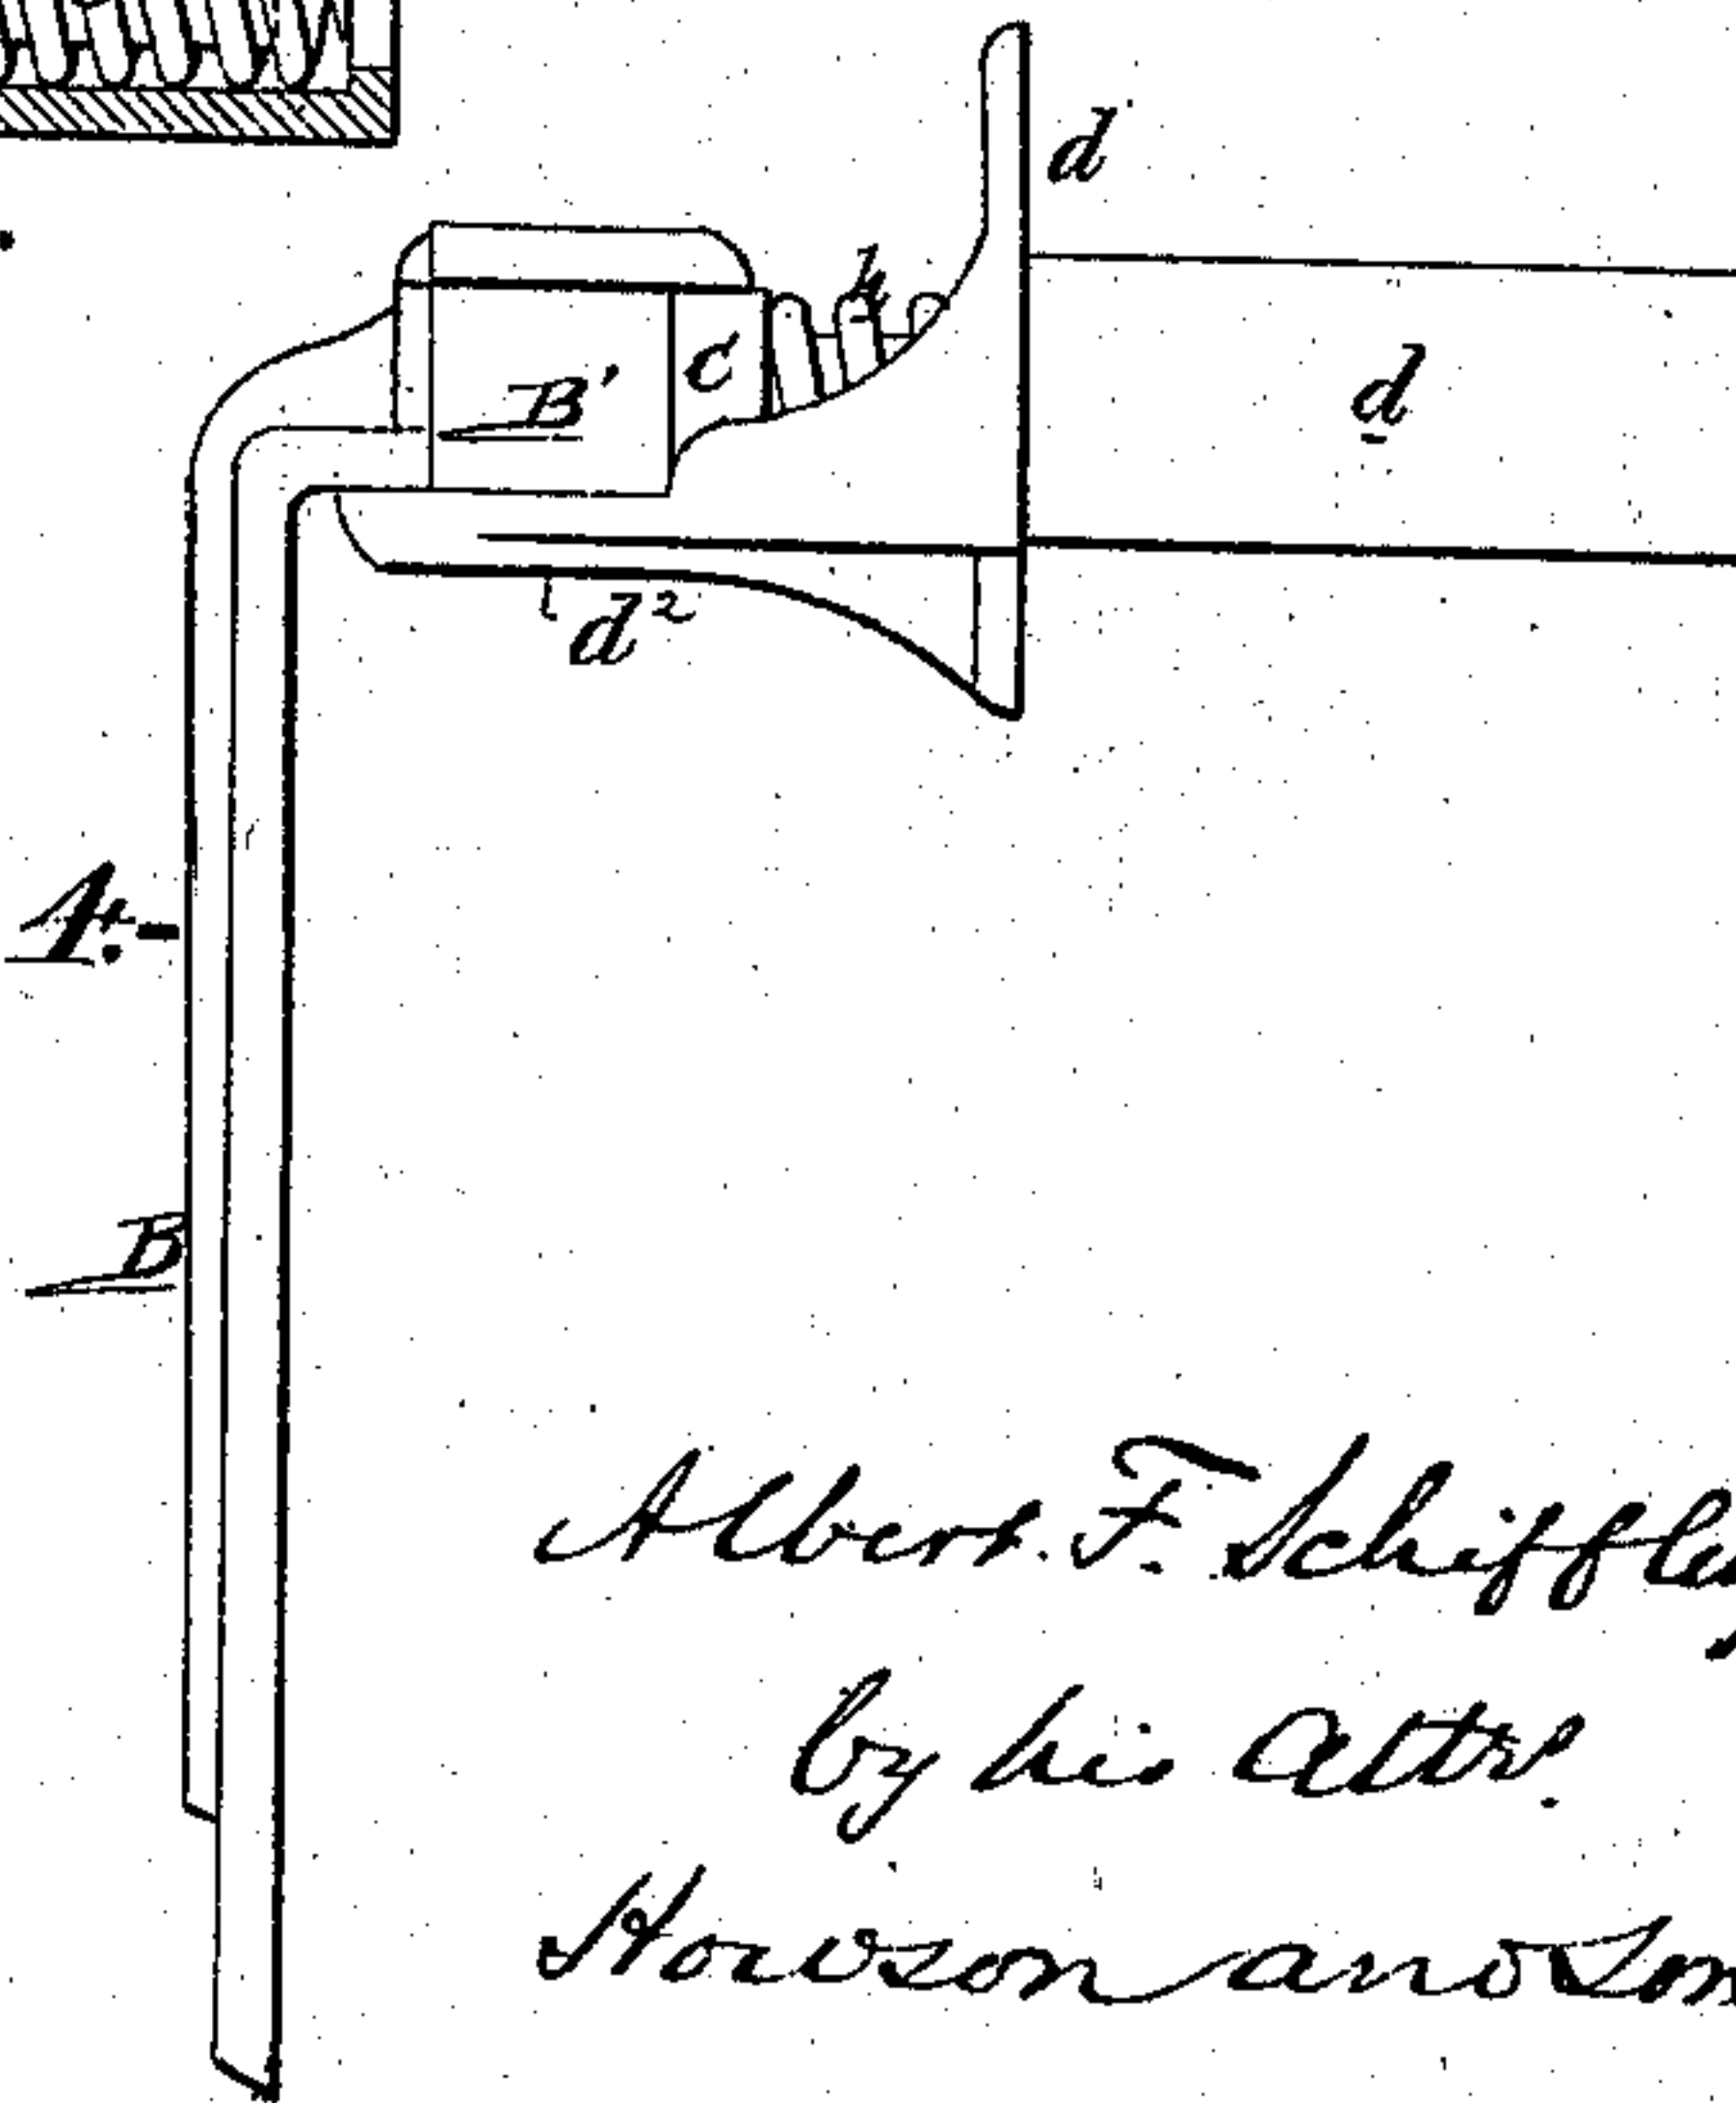 d'
h
C
B'
d
d²
4.-
B
Albert. F. Schiffle
by his Attys.
Howson and Son